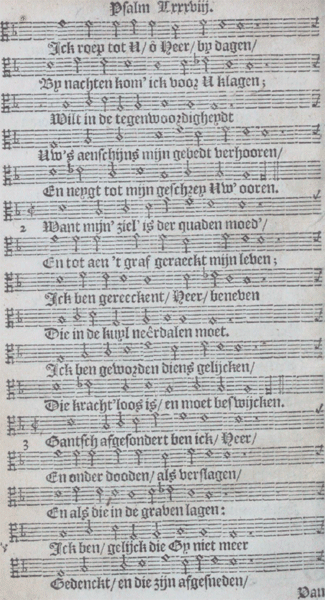 Psalm Lxxxviij.
Ick roep tot U/ ô Heer/ by dagen/
By nachten kom' ick voor U klagen;
Wilt in de tegenwoordigheydt
Uw's aenschijns mijn gebedt verhooren/
En neygt tot mijn geschrey Uw' ooren.
2 Want mijn' ziel' is der quaden moed'/
En tot aen 't graf geraeckt mijn leven;
Ick ben gereeckent/ Heer/ beneven
Die in de kuyl neêrdalen moet.
Ick ben geworden diens gelijcken/
Die kracht'loos is/ en moet beswijcken.
3 Gantsch afgesondert ben ick/ Heer/
En onder dooden/ als verslagen/
En als die in de graven lagen:
Ick ben/ gelijck die Gy niet meer
Gedenckt/ en die zijn afgesneden/
Van